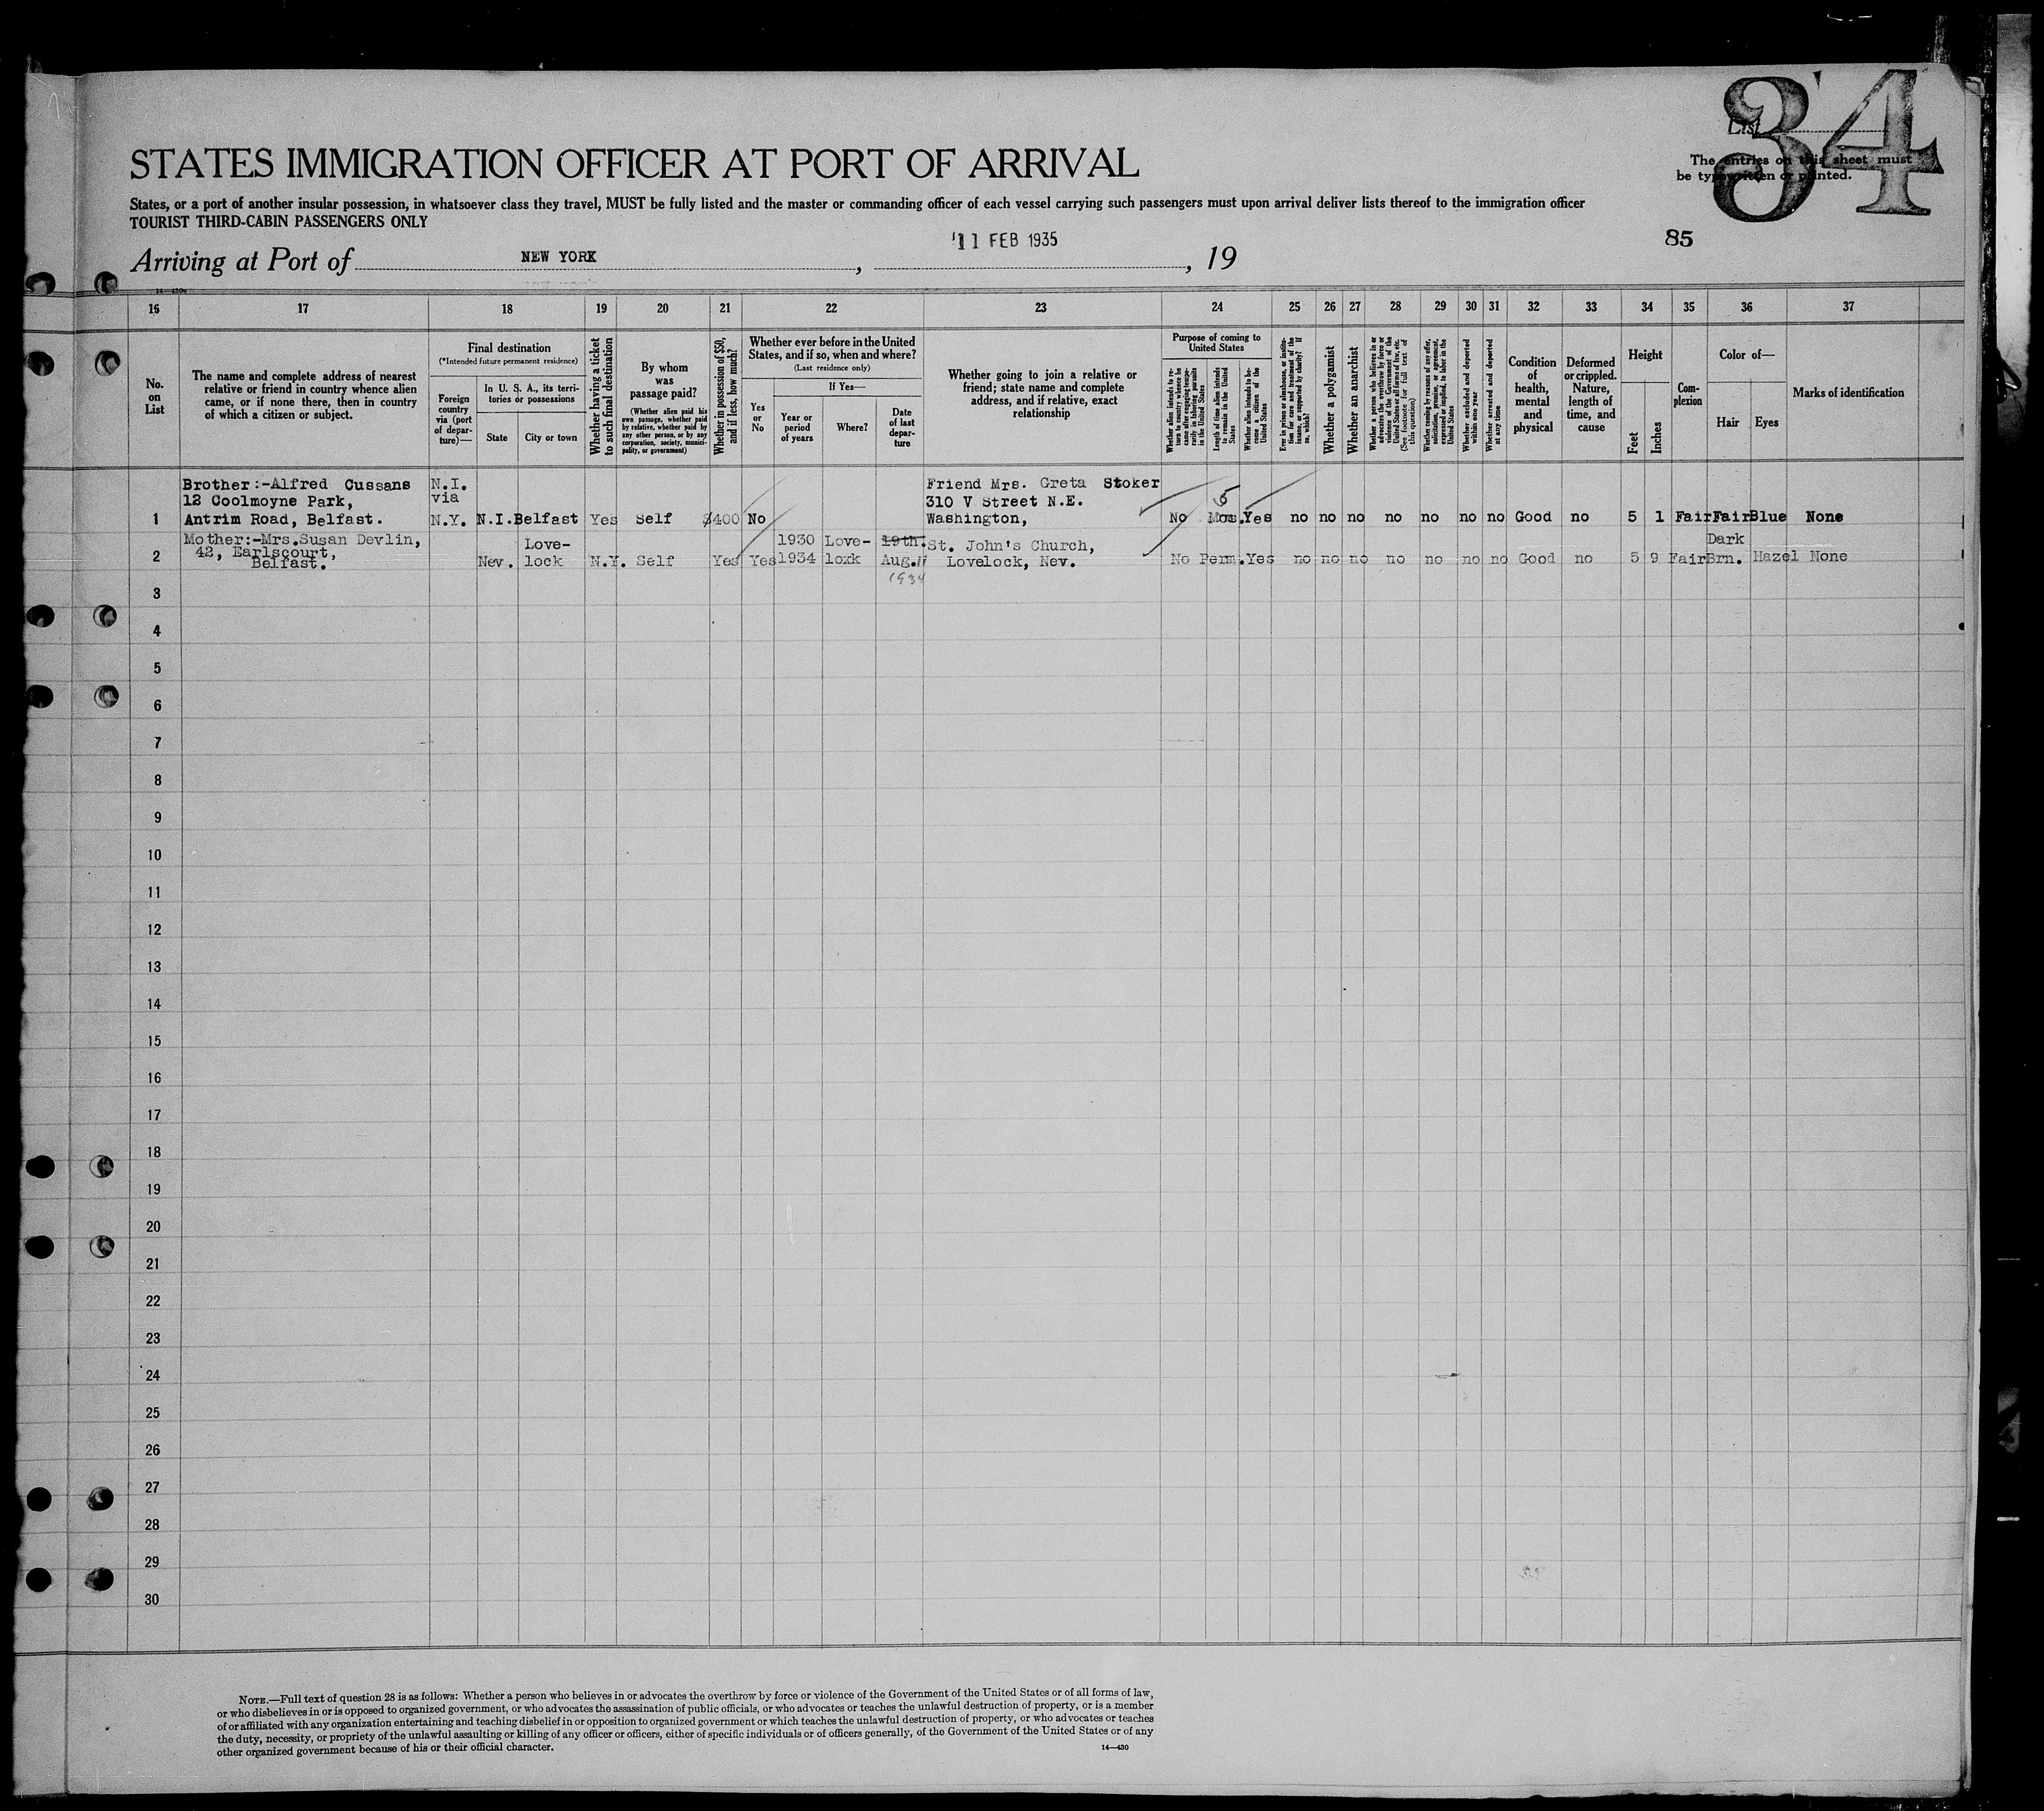 34
List
The entries on this sheet must
be typewritten or printed.
STATES IMMIGRATION OFFICER AT PORT OF ARRIVAL
States, or a port of another insular possession, in whatsoever class they travel, MUST be fully listed and the master or commanding officer of each vessel carrying such passengers must upon arrival deliver lists thereof to the immigration officer
TOURIST THIRD-CABIN PASSENGERS ONLY
85
Arriving at Port of NEW YORK, 11 FEB 1935, 19
14—430a
16 17 18 19 20 21 22 23 24 25 26 27 28 29 30 31 32 33 34 35 36 37
No.
on
List
The name and complete address of nearest
relative or friend in country whence alien
came, or if none there, then in country
of which a citizen or subject.
Final destination
(*Intended future permanent residence)
Foreign
country
via (port
of depar-
ture)—
In U. S. A., its terri-
tories or possessions
State
City or town
Whether having a ticket
to such final destination
By whom
was
passage paid?
(Whether alien paid his
own passage, whether paid
by relative, whether paid by
any other person, or by any
corporation, society, munici-
pality, or government)
Whether in possession of $50,
and if less, how much?
Whether ever before in the United
States, and if so, when and where?
(Last residence only)
Yes
or
No
If Yes—
Year or
period
of years
Where?
Date
of last
depar-
ture
Whether going to join a relative or
friend; state name and complete
address, and if relative, exact
relationship
Purpose of coming to
United States
Whether alien intends to re-
turn to country whence he
came after engaging tempo-
rarily in laboring pursuits
in the United States
Length of time alien intends
to remain in the United
States
Whether alien intends to be-
come a citizen of the
United States
Ever in prison or almshouse, or institu-
tion for care and treatment of the
insane, or supported by charity? If
so, which?
Whether a polygamist
Whether an anarchist
Whether a person who believes in or
advocates the overthrow by force or
violence of the Government of the
United States or all forms of law, etc.
(See footnote for full text of
this question)
Whether coming by reasons of any offer,
solicitation, promise, or agreement,
expressed or implied, to labor in the
United States
Whether excluded and deported
within one year
Whether arrested and deported
at any time
Condition
of
health,
mental
and
physical
Deformed
or crippled.
Nature,
length of
time, and
cause
Height
Feet
Inches
Com-
plexion
Color of—
Hair
Eyes
Marks of identification
Brother:-Alfred Cussans N.I. Friend Mrs. Greta Stoker
12 Coolmoyne Park, via 310 V Street N.E. 5
1 Antrim Road, Belfast. N.Y. N.I. Belfast Yes Self $400 No Washington, No Mos. Yes no no no no no no no Good no 5 1 Fair Fair Blue None
Mother:-Mrs.Susan Devlin, Love- 1930 Love- 19th. St. John's Church, Dark
2 42, Earlscourt, Nev. lock N.Y. Self Yes Yes 1934 loxk Aug. 11 Lovelock, Nev. No Perm. Yes no no no no no no no Good no 5 9 Fair Brn. Hazel None
Belfast. 1934
3
4
5
6
7
8
9
10
11
12
13
14
15
16
17
18
19
20
21
22
23
24
25
26
27
28
29
30
NOTE.—Full text of question 28 is as follows: Whether a person who believes in or advocates the overthrow by force or violence of the Government of the United States or of all forms of law,
or who disbelieves in or is opposed to organized government, or who advocates the assassination of public officials, or who advocates or teaches the unlawful destruction of property, or is a member
of or affiliated with any organization entertaining and teaching disbelief in or opposition to organized government or which teaches the unlawful destruction of property, or who advocates or teaches
the duty, necessity, or propriety of the unlawful assaulting or killing of any officer or officers, either of specific individuals or of officers generally, of the Government of the United States or of any
other organized government because of his or their official character.
14—430